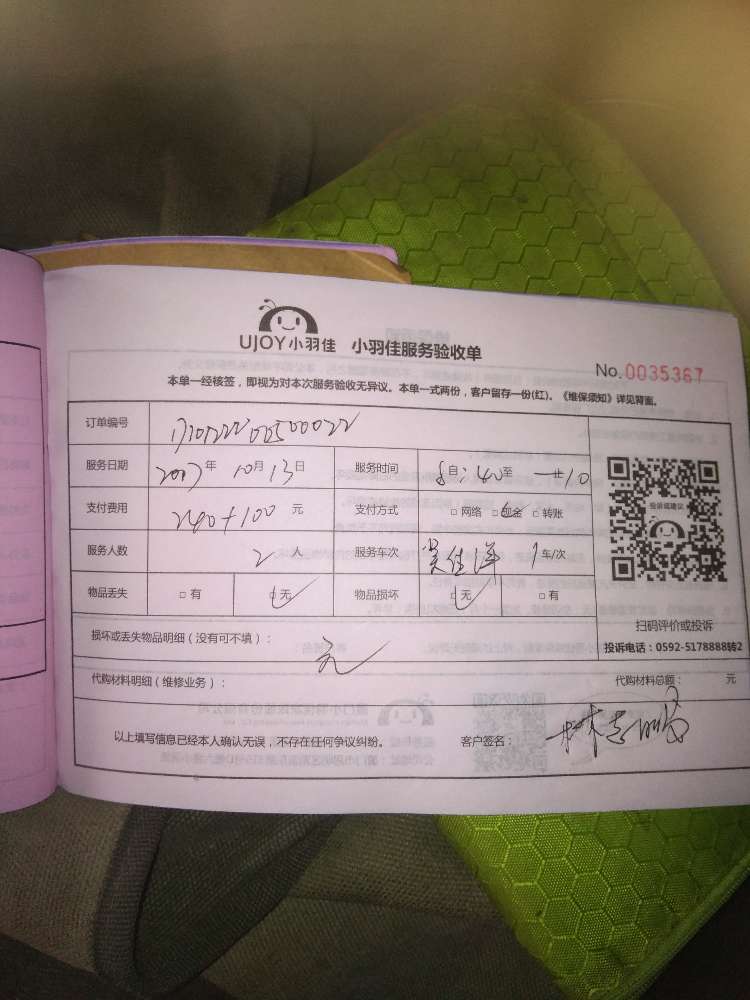 UJOY小羽佳 小羽佳服务验收单
No.0035367
本单一经核签,即视为对本次服务验收无异议。本单一式两份,客户留存一份(红)。《维保须知》详见背面。
订单编号
服务日期 2017年 10月13日 服务时间 自 :40至
支付费用 240+100 元 支付方式 □网络 □现金 □转账
服务人数 2 人 服务车次 吴佳海 1车/次
投诉或建议
物品丢失 □有 □无 物品损坏 □无 □有
扫码评价或投诉
投诉电话:0592-5178888转2
损坏或丢失物品明细(没有可不填): 无
代购材料明细(维修业务): 代购材料总额: 元
以上填写信息已经本人确认无误,不存在任何争议纠纷。 客户签名: